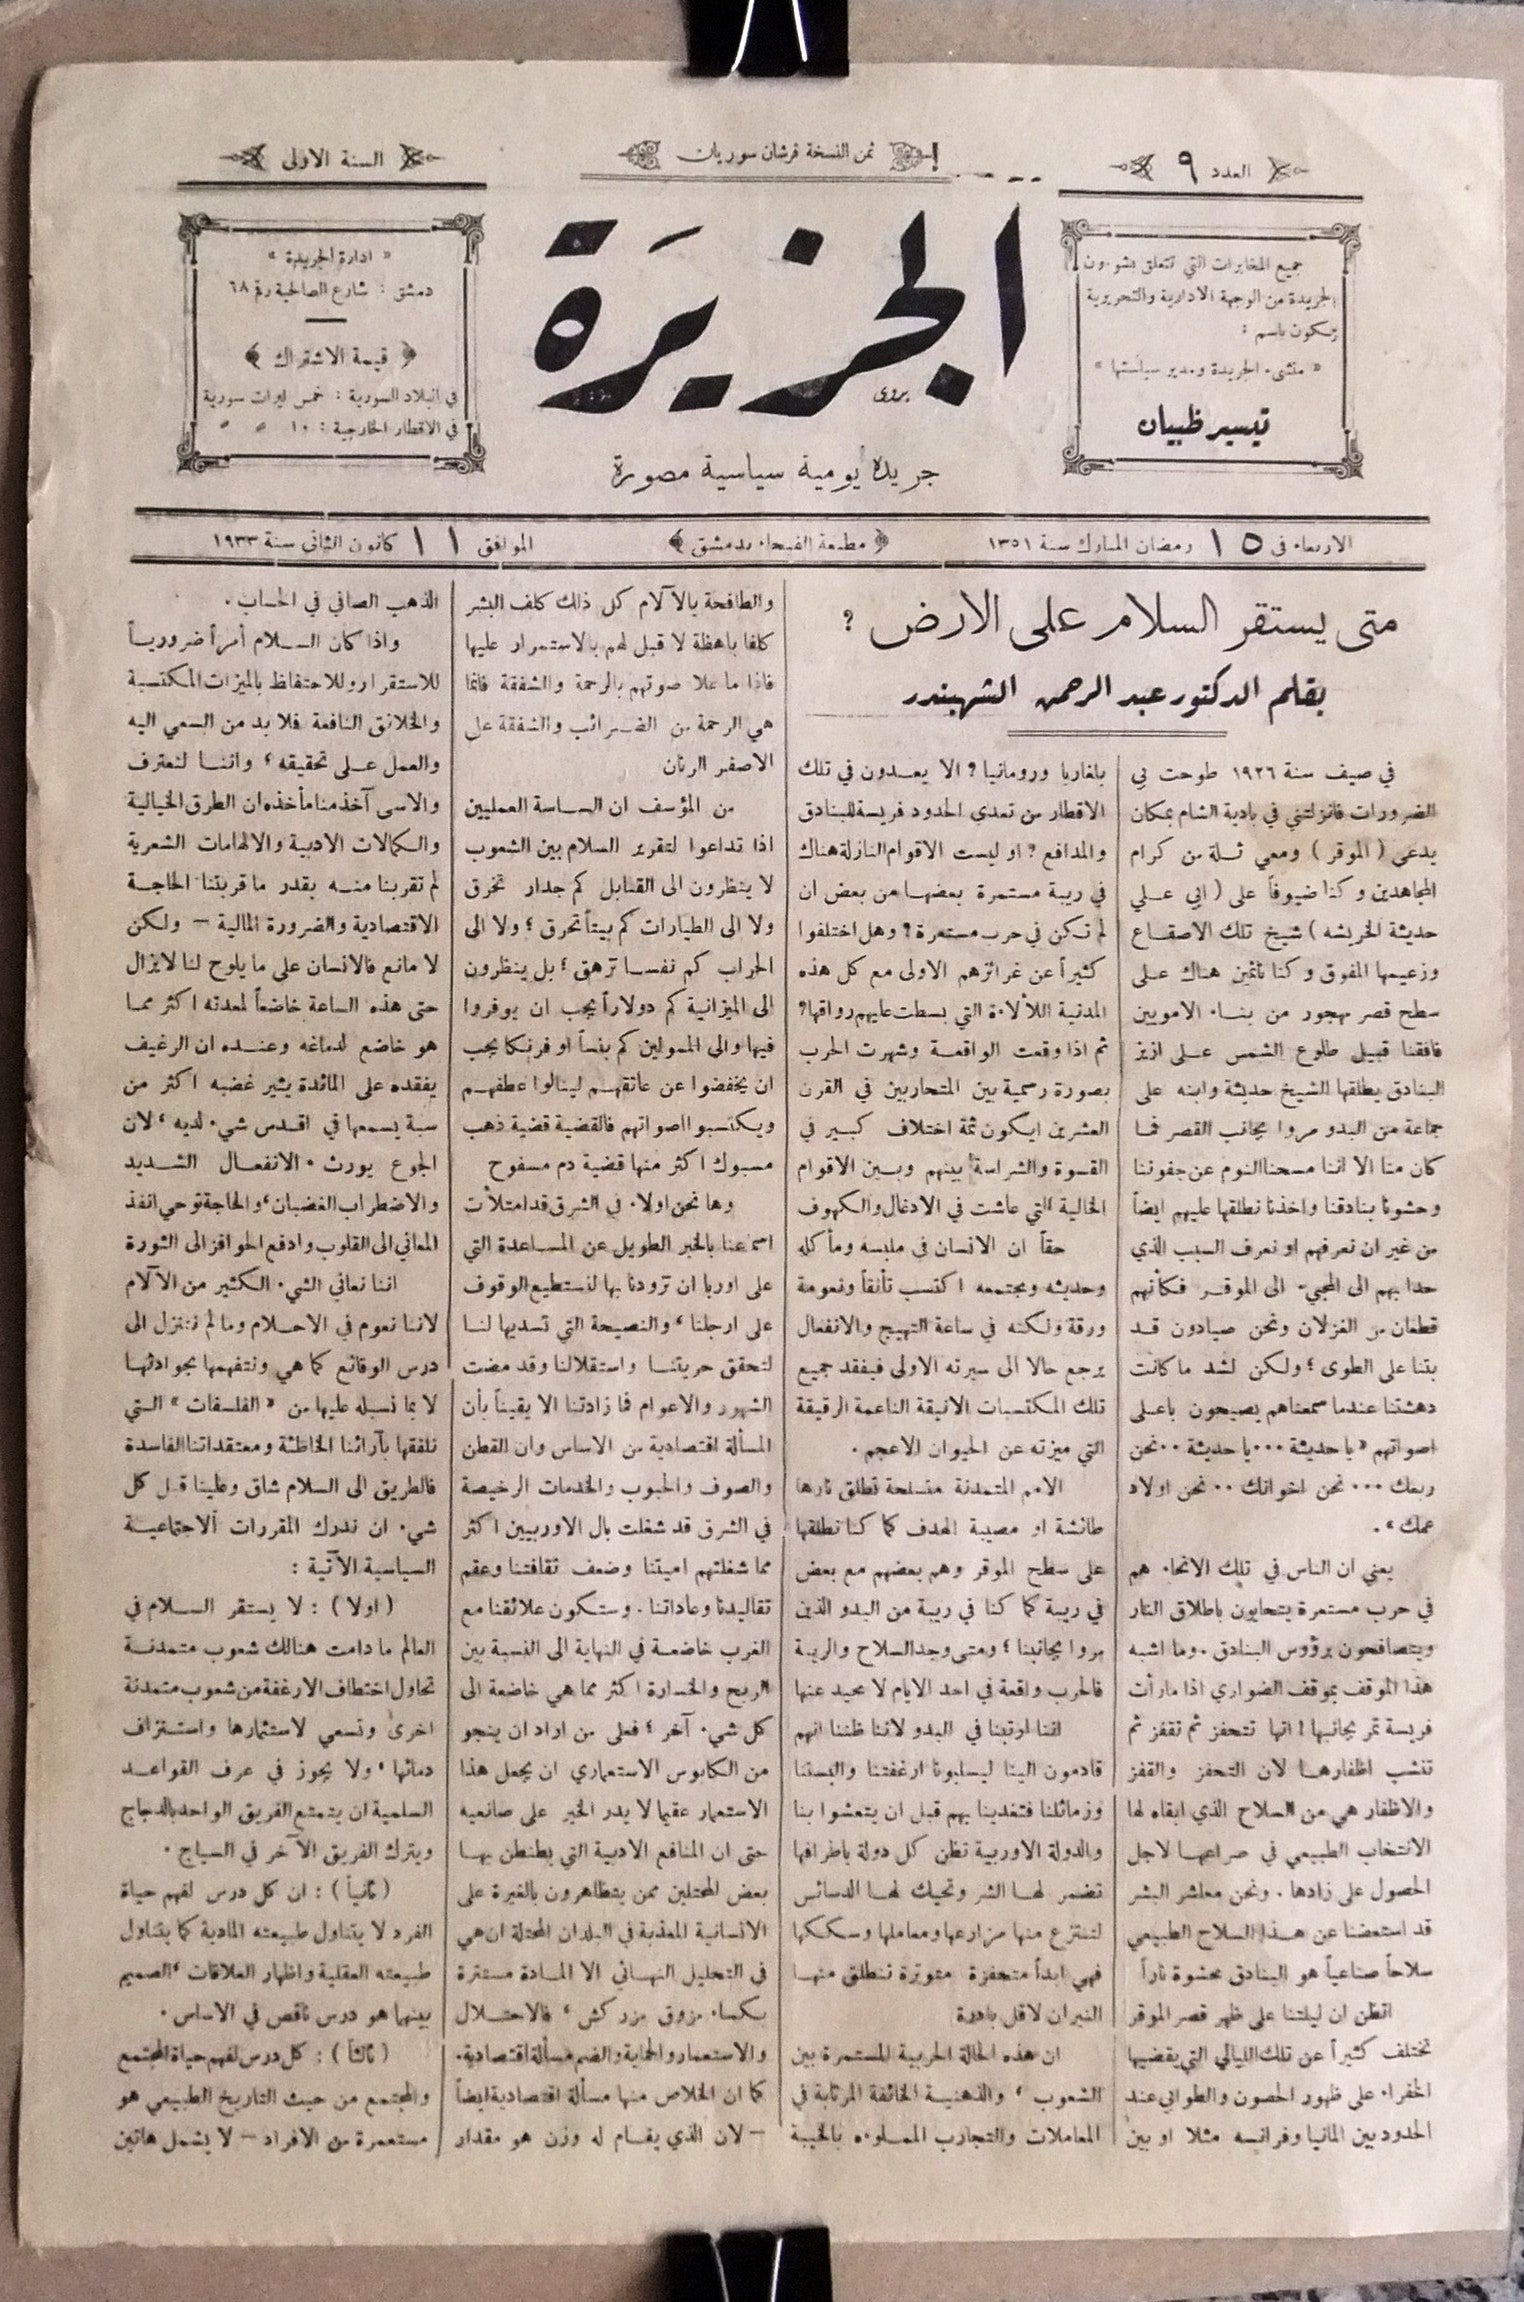 العدد ٩
ثمن النسخة قرشان سوريان
السنة الاولى
جميع المخابرات التي تتعلق بشؤون
الجريدة من الوجهة الادارية والتحريرية
تكون باسم :
« منشىء الجريدة ومدير سياستها »
تيسير ظبيان
الجزيرة
بروى
جريدة يومية سياسية مصورة
« ادارة الجريدة »
دمشق : شارع الصالحية رقم ٦٨
قيمة الاشتراك
في البلاد السورية : خمس ليرات سورية
في الاقطار الخارجية : ١٠ » »
الاربعاء في ١٥ رمضان المبارك سنة ١٣٥١
مطبعة الفيحاء بدمشق
الموافق ١١ كانون الثاني سنة ١٩٣٣
متى يستقر السلام على الارض ?
بقلم الدكتور عبد الرحمن الشهبندر
في صيف سنة ١٩٢٦ طوحت بي
الضرورات فانزلتني في بادية الشام بمكان
يدعى ( الموقر ) ومعي ثلة من كرام
المجاهدين وكنا ضيوفاً على ( ابي علي
حديثة الخريشه ) شيخ تلك الاصقاع
وزعيمها المفوق وكنا نائمين هناك على
سطح قصر مهجور من بناء الامويين
فافقنا قبيل طلوع الشمس على ازيز
البنادق يطلقها الشيخ حديثة وابنه على
جماعة من البدو مروا بجانب القصر فما
كان منا الا اننا مسحنا النوم عن جفوننا
وحشونا بنادقنا واخذنا نطلقها عليهم ايضاً
من غير ان نعرفهم او نعرف السبب الذي
حدا بهم الى المجيء الى الموقر فكأنهم
قطعان من الغزلان ونحن صيادون قد
بتنا على الطوى ؛ ولكن لشد ما كانت
دهشتنا عندما سمعناهم يصيحون باعلى
اصواتهم « يا حديثة ... يا حديثة .. نحن
ربعك ... نحن اخوانك .. نحن اولاد
عمك » .
يعني ان الناس في تلك الانحاء هم
في حرب مستمرة يتحايون باطلاق النار
ويتصافحون برؤوس البنادق . وما اشبه
هذا الموقف بموقف الضواري اذا ما رأت
فريسة تمر بجانبها ! انها تتحفز ثم تقفز ثم
تنشب اظفارها لان التحفز والقفز
والاظفار هي من السلاح الذي ابقاه لها
الانتخاب الطبيعي في صراعها لاجل
الحصول على زادها . ونحن معاشر البشر
قد استعضنا عن هذا السلاح الطبيعي
سلاحاً صناعياً هو البنادق محشوة ناراً
اتظن ان ليلتنا على ظهر قصر الموقر
تختلف كثيراً عن تلك الليالي التي يقضيها
الخفراء على ظهور الحصون والطوابي عند
الحدود بين المانيا وفرانسه مثلا او بين
بلغاريا ورومانيا ? الا يعدون في تلك
الاقطار من تعدى الحدود فريسة للبنادق
والمدافع ? او ليست الاقوام النازلة هناك
في ريبة مستمرة بعضها من بعض ان
لم تكن في حرب مستعرة ? وهل اختلفوا
كثيراً عن غرائزهم الاولى مع كل هذه
المدنية اللألاءة التي بسطت عليهم رواقها ?
ثم اذا وقعت الواقعة وشهرت الحرب
بصورة رسمية بين المتحاربين في القرن
العشرين ايكون ثمة اختلاف كبير في
القسوة والشراسة بينهم وبين الاقوام
الخالية التي عاشت في الادغال والكهوف
حقاً ان الانسان في ملبسه ومأكله
وحديثه ومجتمعه اكتسب تأنقاً ونعومة
ورقة ولكنه في ساعة التهيج والانفعال
يرجع حالا الى سيرته الاولى فيفقد جميع
تلك المكتسبات الانيقة الناعمة الرقيقة
التي ميزته عن الحيوان الاعجم .
الامم المتمدنة متسلحة تطلق نارها
طائشة او مصيبة الهدف كما كنا نطلقها
على سطح الموقر وهم بعضهم مع بعض
في ريبة كما كنا في ريبة من البدو الذين
مروا بجانبنا ؛ ومتى وجد السلاح والريبة
فالحرب واقعة في احد الايام لا محيد عنها
اننا ارتبنا في البدو لاننا ظننا انهم
قادمون الينا ليسلبونا ارغفتنا والبستنا
وزمائلنا فتغدينا بهم قبل ان يتعشوا بنا
والدولة الاوربية تظن كل دولة باطرافها
تضمر لها الشر وتحيك لها الدسائس
لتنتزع منها مزارعها ومعاملها وسككها
فهي ابداً متحفزة متوترة تنطلق منها
النيران لاقل بادرة
ان هذه الحالة الحربية المستمرة بين
الشعوب ، والذهنية الخائفة المرتابة في
المعاملات والتجارب المملوءة بالخيبة
والطافحة بالآلام كل ذلك كلف البشر
كلفا باهظة لا قبل لهم بالاستمرار عليها
فاذا ما علا صوتهم بالرحمة والشفقة فانما
هي الرحمة من الضرائب والشفقة على
الاصفر الرنان
من المؤسف ان الساسة العمليين
اذا تداعوا لتقرير السلام بين الشعوب
لا ينظرون الى القنابل كم جدار تخرق
ولا الى الطيارات كم بيتاً تحرق ؛ ولا الى
الحراب كم نفسا تزهق ؛ بل ينظرون
الى الميزانية كم دولاراً يجب ان يوفروا
فيها والى الممولين كم بنساً او فرنكا يجب
ان يخفضوا عن عاتقهم لينالوا عطفهم
ويكتسبوا اصواتهم فالقضية قضية ذهب
مسبوك اكثر منها قضية دم مسفوح
وها نحن اولاء في الشرق قد امتلأت
اسماعنا بالخبر الطويل عن المساعدة التي
على اوربا ان تزودنا بها لنستطيع الوقوف
على ارجلنا ، والنصيحة التي تسديها لنا
لتحقق حريتنا واستقلالنا وقد مضت
الشهور والاعوام فما زادتنا الا يقيناً بأن
المسألة اقتصادية من الاساس وان القطن
والصوف والحبوب والخدمات الرخيصة
في الشرق قد شغلت بال الاوربيين اكثر
مما شغلتهم اميتنا وضعف ثقافتنا وعقم
تقاليدنا وعاداتنا . وستكون علائقنا مع
الغرب خاضعة في النهاية الى النسبة بين
الربح والخسارة اكثر مما هي خاضعة الى
كل شيء آخر ؛ فعلى من اراد ان ينجو
من الكابوس الاستعماري ان يجعل هذا
الاستعمار عقيما لا يدر الخير على صانعيه
حتى ان المنافع الادبية التي يطنطن بها
بعض المحتلين ممن يتظاهرون بالغيرة على
الانسانية المعذبة في البلدان المحتلة ان هي
في التحليل النهائي الا المادة مستترة
بكساء مزوق مزركش ، فالاحتلال
والاستعمار والحماية والضم مسألة اقتصادية،
كما ان الخلاص منها مسألة اقتصادية ايضاً
— لان الذي يقام له وزن هو مقدار
الذهب الصافي في الحساب .
واذا كان السلام أمراً ضرورياً
للاستقرار وللاحتفاظ بالميزات المكتسبة
والخلائق النافعة فلا بد من السعي اليه
والعمل على تحقيقه ، واننا لنعترف
والاسى آخذ منا مأخذه ان الطرق الخيالية
والكمالات الادبية والالهامات الشعرية
لم تقربنا منه بقدر ما قربتنا الحاجة
الاقتصادية والضرورة المالية — ولكن
لا مانع فالانسان على ما يلوح لنا لا يزال
حتى هذه الساعة خاضعاً لمعدته اكثر مما
هو خاضع لدماغه وعنده ان الرغيف
يفقده على المائدة يثير غضبه اكثر من
سبة يسمعها في اقدس شيء لديه ، لان
الجوع يورث الانفعال الشديد
والاضطراب الغضبان ، والحاجة توحي انفذ
المعاني الى القلوب وادفع الحوافز الى الثورة
اننا نعاني الشيء الكثير من الآلام
لاننا نعوم في الاحلام وما لم نتنزل الى
درس الوقائع كما هي ونتفهمها بجواذثها
لا بما نسبله عليها من « الفلسفات » التي
نلفقها بآرائنا الخاطئة ومعتقداتنا الفاسدة
فالطريق الى السلام شاق وعلينا قبل كل
شيء ان ندرك المقررات الاجتماعية
السياسية الآتية :
( اولا ) : لا يستقر السلام في
العالم ما دامت هنالك شعوب متمدنة
تحاول اختطاف الارغفة من شعوب متمدنة
اخرى وتسعى لاستثمارها واستنزاف
دمائها ، ولا يجوز في عرف القواعد
السلمية ان يتمتع الفريق الواحد بالدجاج
ويترك الفريق الآخر في السياج .
( ثانياً ) : ان كل درس لفهم حياة
الفرد لا يتناول طبيعته المادية كما يتناول
طبيعته العقلية واظهار العلاقات الصميم
بينهما هو درس ناقص في الاساس .
( ثالثاً ) : كل درس لفهم حياة المجتمع
والمجتمع من حيث التاريخ الطبيعي هو
مستعمرة من الافراد — لا يشمل هاتين